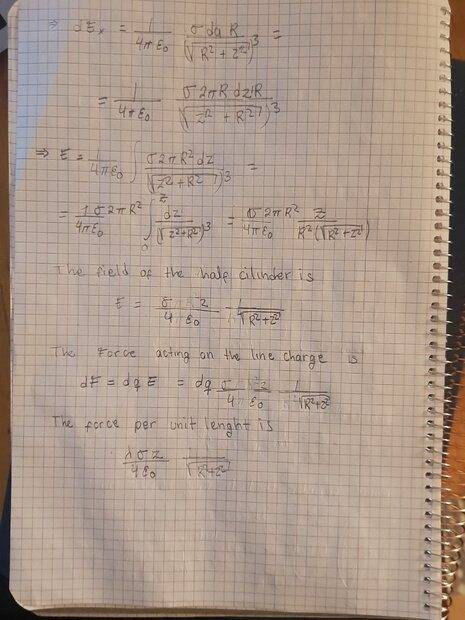 ⇒ dEₓ = 1/(4πε₀) σ da R/(√(R² + z²))³ =
= 1/(4πε₀) σ 2πR dz R/(√(z² + R²))³
⇒ E = 1/(4πε₀) ∫ σ2πR² dz/(√(z² + R²))³ =
= 1 σ 2πR²/(4πε₀) ∫₀ᶻ dz/(√(z²+R²))³ = σ 2πR²/(4πε₀) z/(R²(√(R²+z²)))
The field of the half cilinder is
E = σ z/(4 ε₀) 1/√(R²+z²)
The Force acting on the line charge is
dF = dq E = dq σ z/(4 ε₀) 1/√(R²+z²)
The force per unit lenght is
λ σ z/(4 ε₀) 1/√(R²+z²)